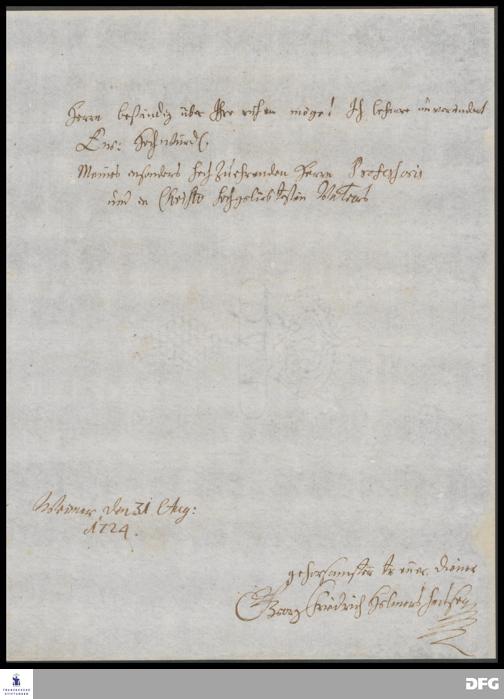 Herrn beständig über Ihro ruhen möge! Ich beharre unverändert
Ew: Hochwürd.
Meines besonders HochzuEhrenden Herrn Professoris
und in Christo hochgeliebtesten Vaters
Weimar den 31 Aug:
1724.
gehorsamster treuer Diener
Georg Friedrich
FRANCKESCHE
STIFTUNGEN
DFG